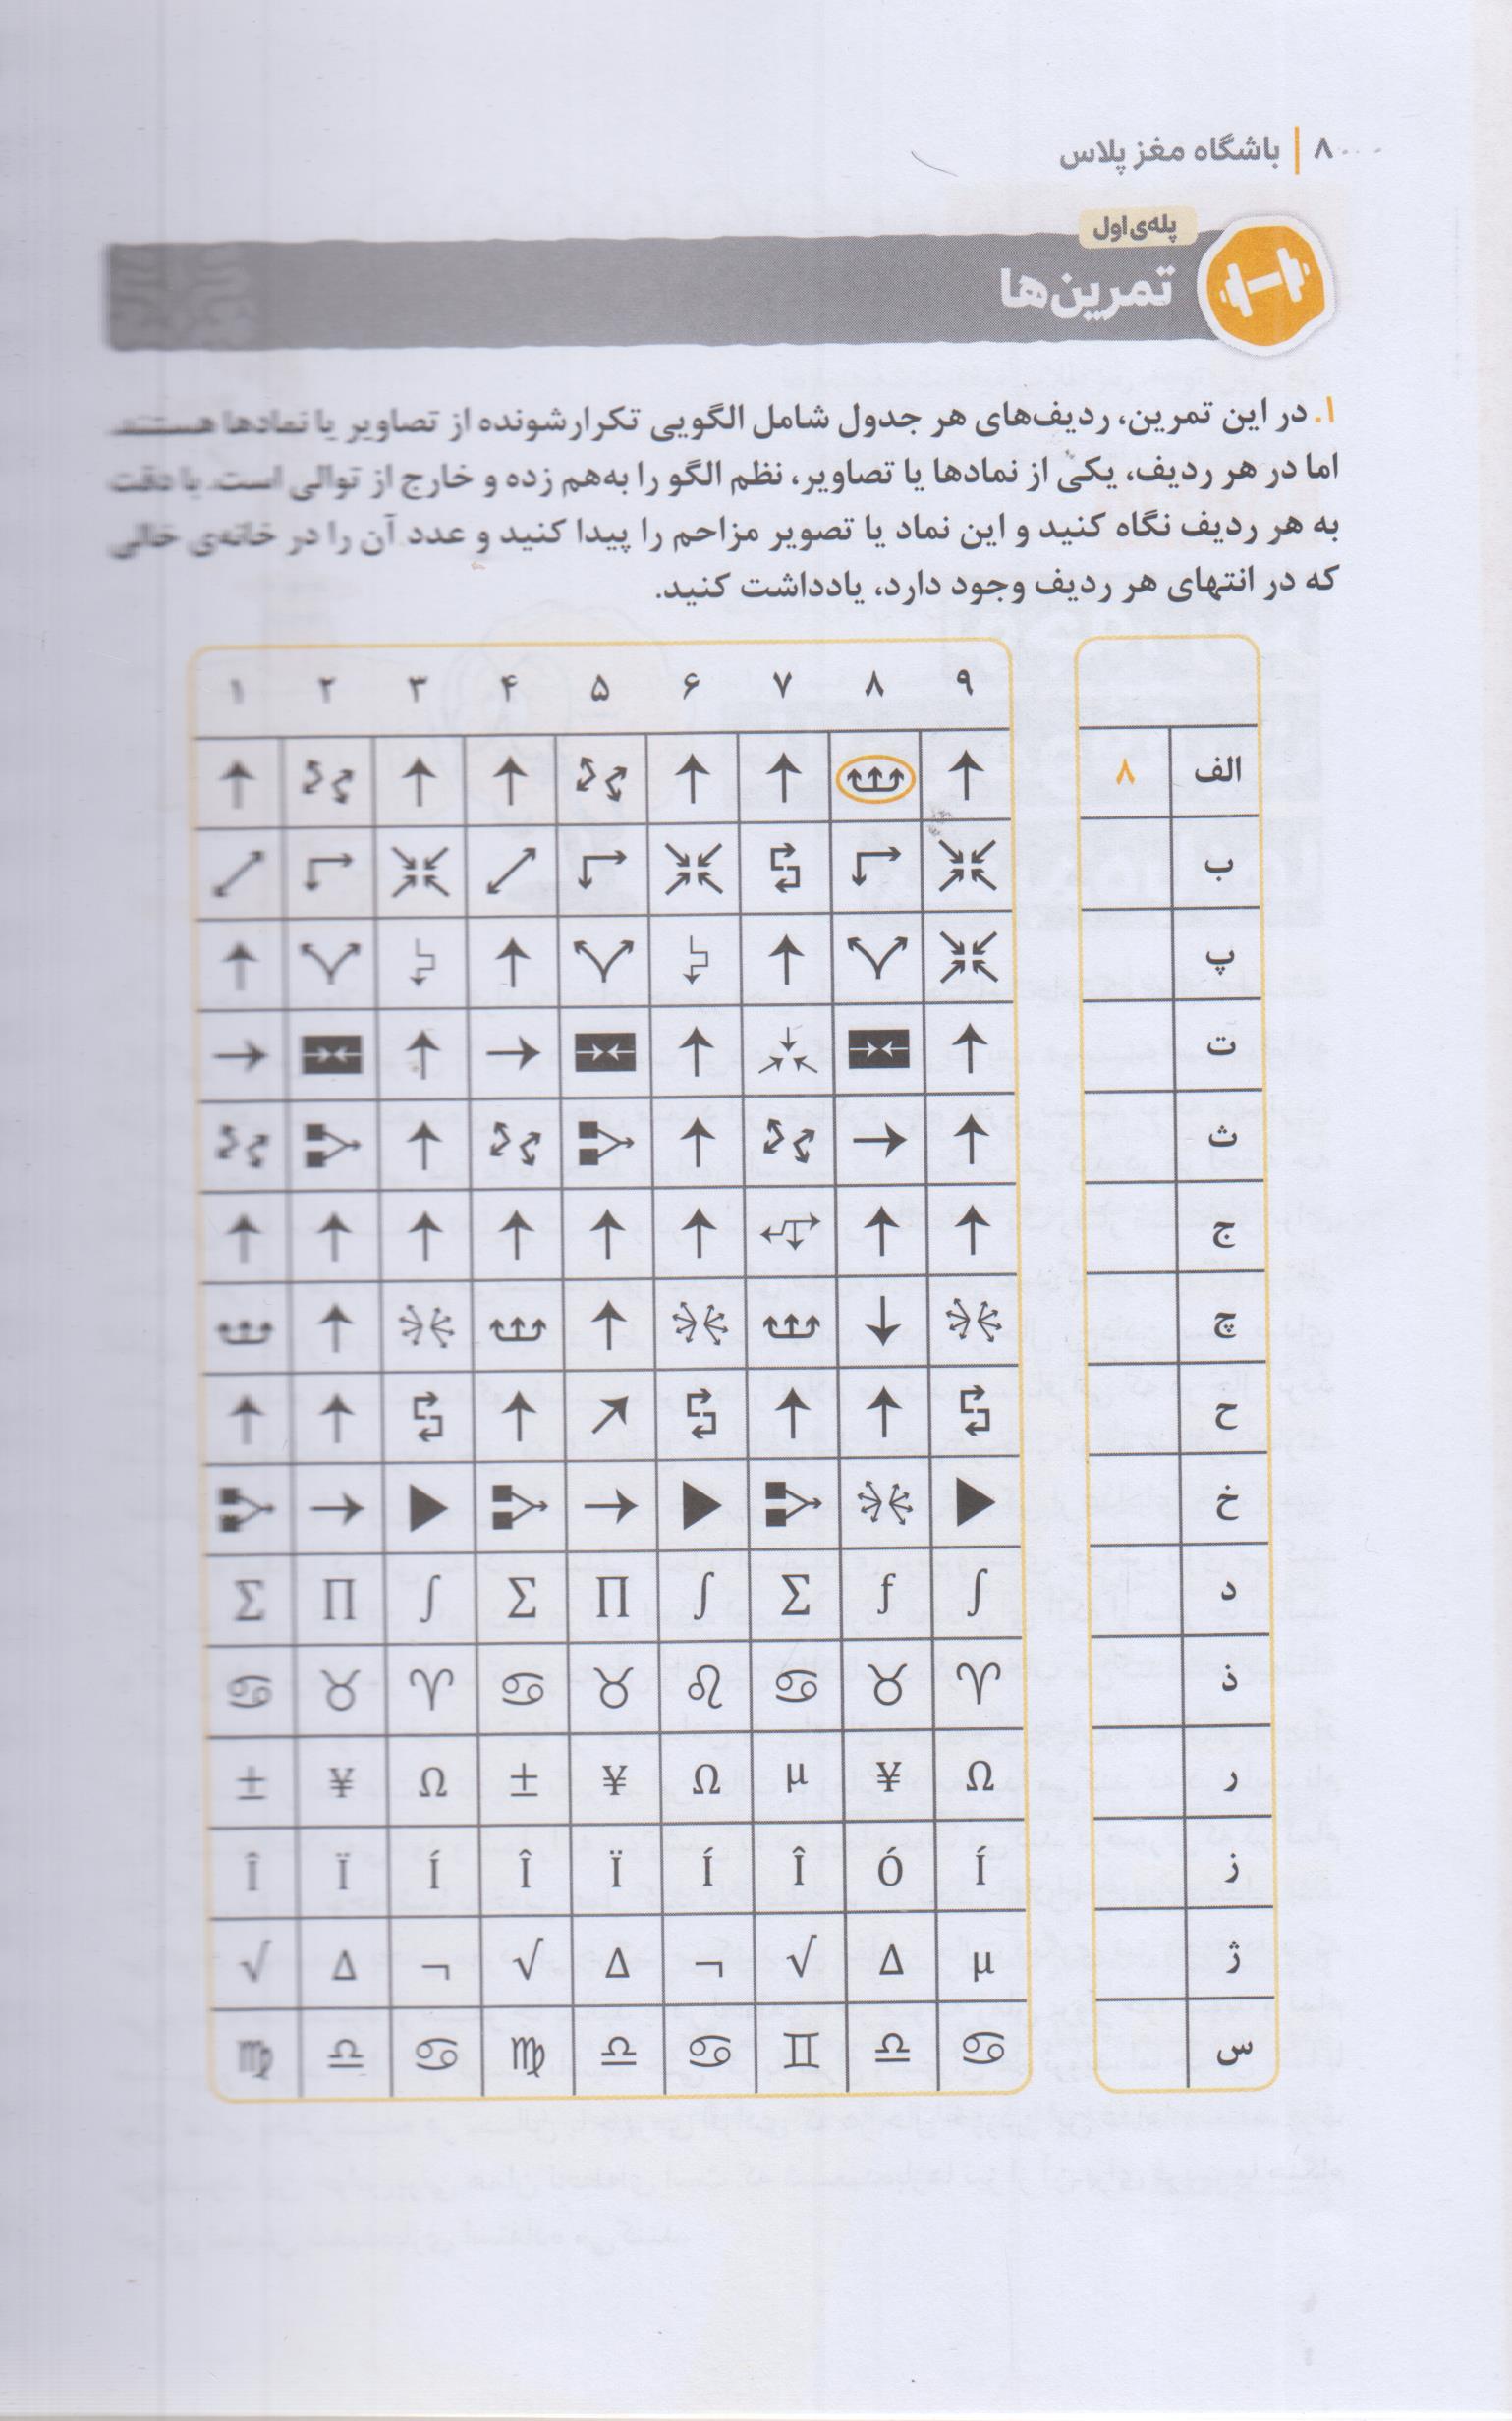 ۸ | باشگاه مغز پلاس
پله‌ی اول
تمرین‌ها
۱. در این تمرین، ردیف‌های هر جدول شامل الگویی تکرارشونده از تصاویر یا نمادها هستند.
اما در هر ردیف، یکی از نمادها یا تصاویر، نظم الگو را به‌هم زده و خارج از توالی است. با دقت
به هر ردیف نگاه کنید و این نماد یا تصویر مزاحم را پیدا کنید و عدد آن را در خانه‌ی خالی
که در انتهای هر ردیف وجود دارد، یادداشت کنید.
۱ ۲ ۳ ۴ ۵ ۶ ۷ ۸ ۹
الف ۸
ب
پ
ت
ث
ج
چ
ح
خ
∑ ∏ ∫ ∑ ∏ ∫ ∑ ƒ ∫ د
♋ ♉ ♈ ♋ ♉ ♌ ♋ ♉ ♈ ذ
± ¥ Ω ± ¥ Ω µ ¥ Ω ر
Î Ï Í Î Ï Í Î Ó Í ز
√ ∆ ¬ √ ∆ ¬ √ ∆ µ ژ
♍ ♎ ♋ ♍ ♎ ♋ ♊ ♎ ♋ س